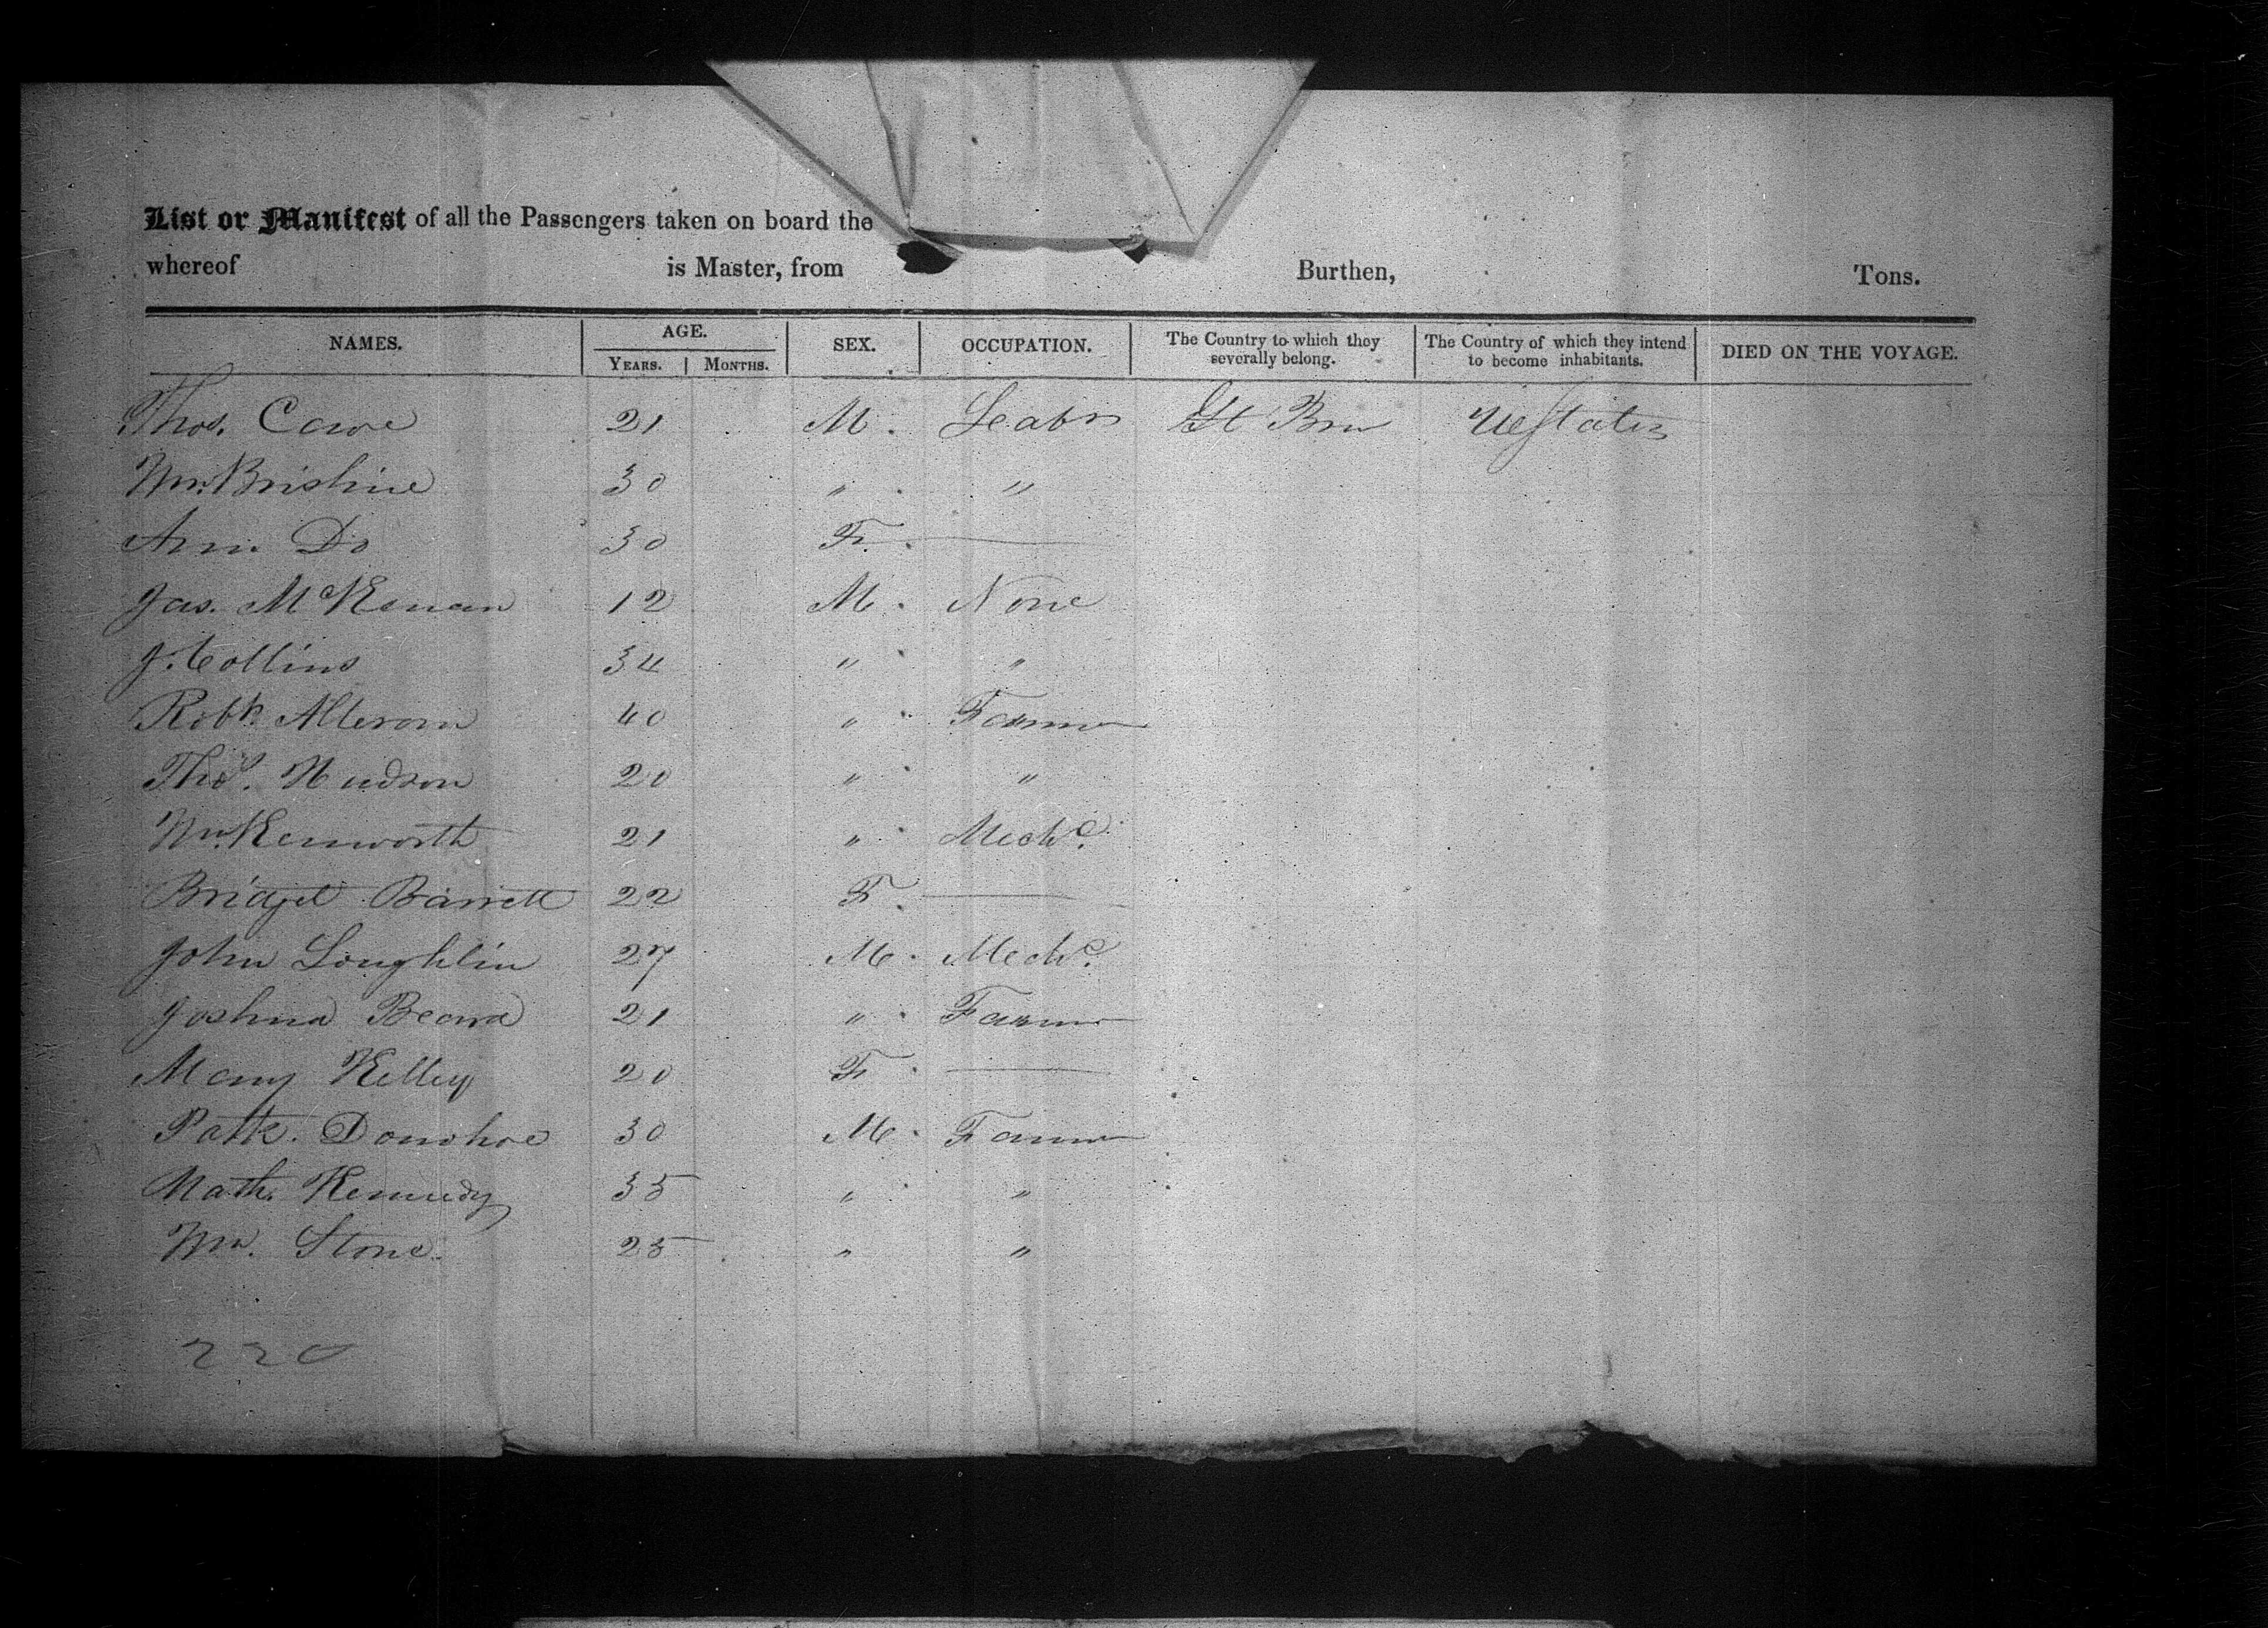 List or Manifest of all the Passengers taken on board the
whereof is Master, from Burthen, Tons.
NAMES. AGE. YEARS. MONTHS. SEX. OCCUPATION. The Country to which they severally belong. The Country of which they intend to become inhabitants. DIED ON THE VOYAGE.
Thos. Cawe 21 M. Leabr Gt Brn UeStates
Wm. Brishine 30 " "
Ann Do 30 F.
Jas. McKenan 12 M. None
J. Collins 34 " "
Robt. 40 " Farmer
Thos. Hudson 20 " "
Wm. Kenworth 21 " Mechc.
Bridget Barrett 22 F.
John Loughlin 27 M. Mechc.
Joshua Beard 21 " Farmer
Mary Kelley 20 F.
Patk. Donohoe 30 M. Farmer
Math. Kennedy 35 " "
Wm. Stone 25 " "
220